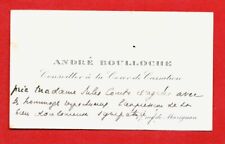 ANDRÉ BOULLOCHE
Conseiller à la Cour de Cassation
prie Madame Jules Comte d'agréer avec
ses hommages respectueux l'expression de sa
bien douloureuse sympathie
de Marignan